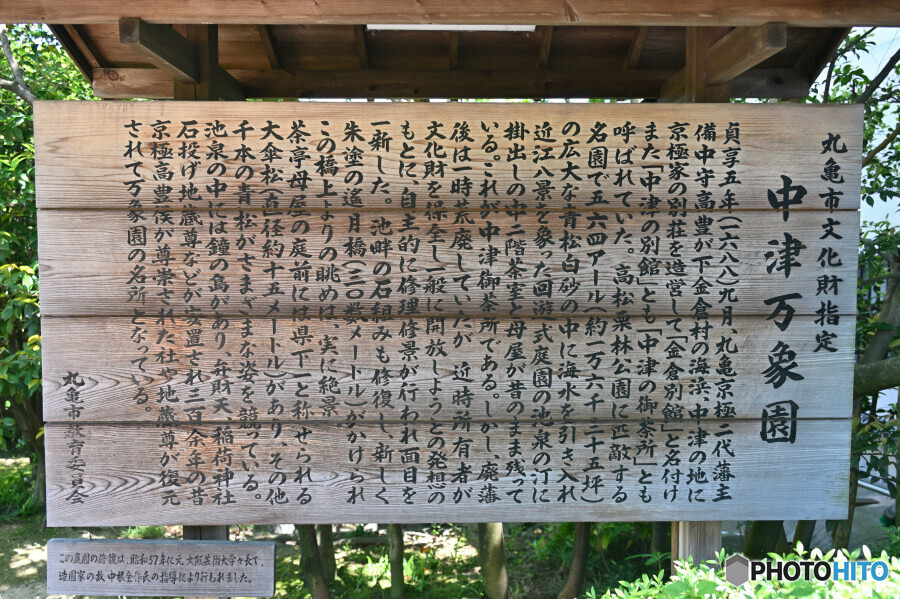 丸亀市文化財指定
中津万象園
貞享五年(一六八八)九月、丸亀京極二代藩主
備中守高豊が下金倉村の海浜、中津の地に
京極家の別荘を造営して「金倉別館」と名付け
また「中津の別館」とも「中津の御茶所」とも
呼ばれていた。高松栗林公園に匹敵する
名園で五・六四アール(約一万六千二十五坪)
の広大な青松白砂の中に海水を引き入れ
近江八景を象った回游式庭園の池泉の汀に
掛出しの中二階茶室と母屋が昔のまま残って
いる。これが中津御茶所である。しかし、廃藩
後は一時荒廃していたが、近時所有者が
文化財を保全し一般に開放しようとの発想の
もとに、自主的に修理修景が行われ面目を
一新した。池畔の石組みも修復し、新しく
朱塗の邀月橋(三〇数メートル)がかけられ
この橋上よりの眺めは、実に絶景。
茶亭母屋の庭前には県下一と称せられる
大傘松(直径約十五メートル)があり、その他
千本の青松がさまざまな姿を競っている。
池泉の中には鐘の島があり、弁財天、稲荷神社
石投げ地蔵尊などが安置され三百余年の昔
京極高豊侯が尊崇された社や地蔵尊が復元
されて万象園の名所となっている。
丸亀市教育委員会
この庭園の修復は、昭和57年に元大阪芸術大学々長で、
造園家の故 中根金作氏の指導により行われました。
PHOTOHITO